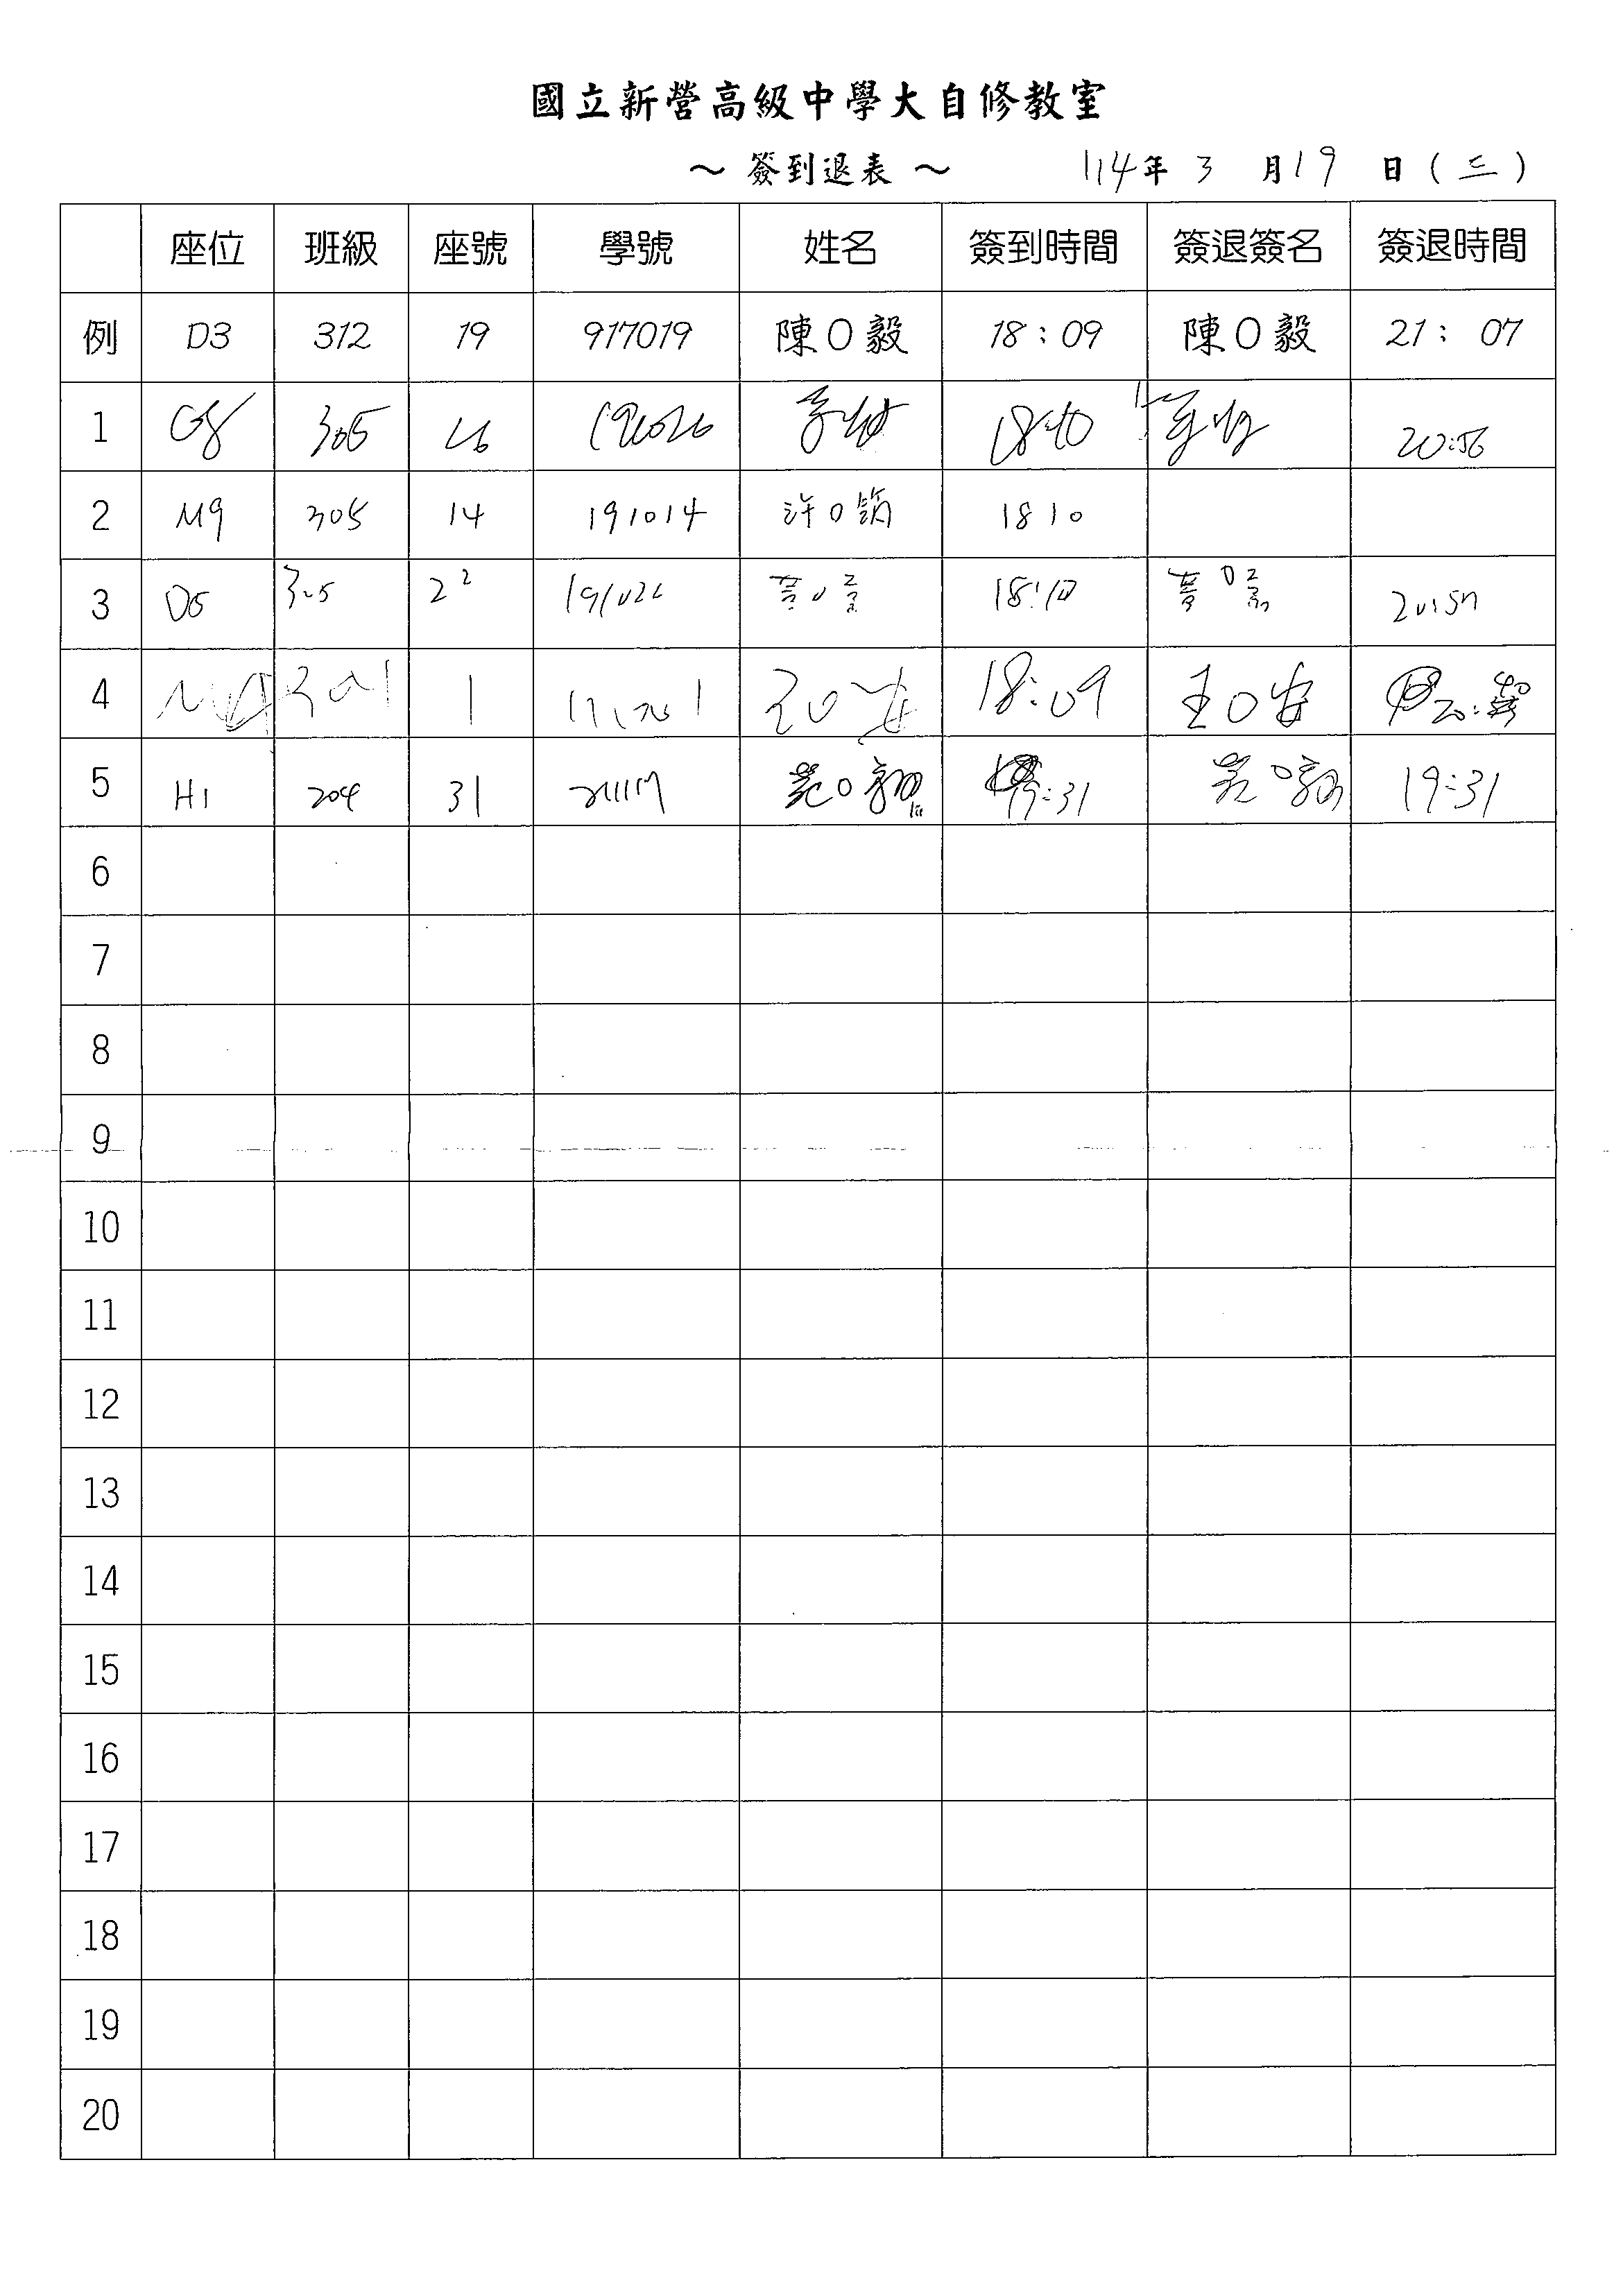 國立新營高級中學大自修教室
～ 簽到退表 ～ 114年 3 月19 日(三)
座位 班級 座號 學號 姓名 簽到時間 簽退簽名 簽退時間
例 D3 312 19 917019 陳O毅 18:09 陳O毅 21: 07
1 G8 305 26 20:56
2 M9 305 14 191014 許O筑 1810
3 305 22 18:10
4 301 1 18:09 王O安
5 H1 204 31 范O翔 19:31 19:31
6
7
8
9
10
11
12
13
14
15
16
17
18
19
20